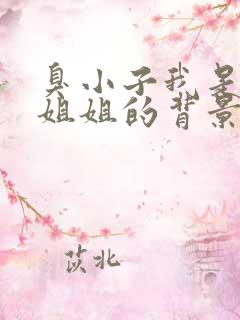 臭小子我是
姐姐的背景
苡北